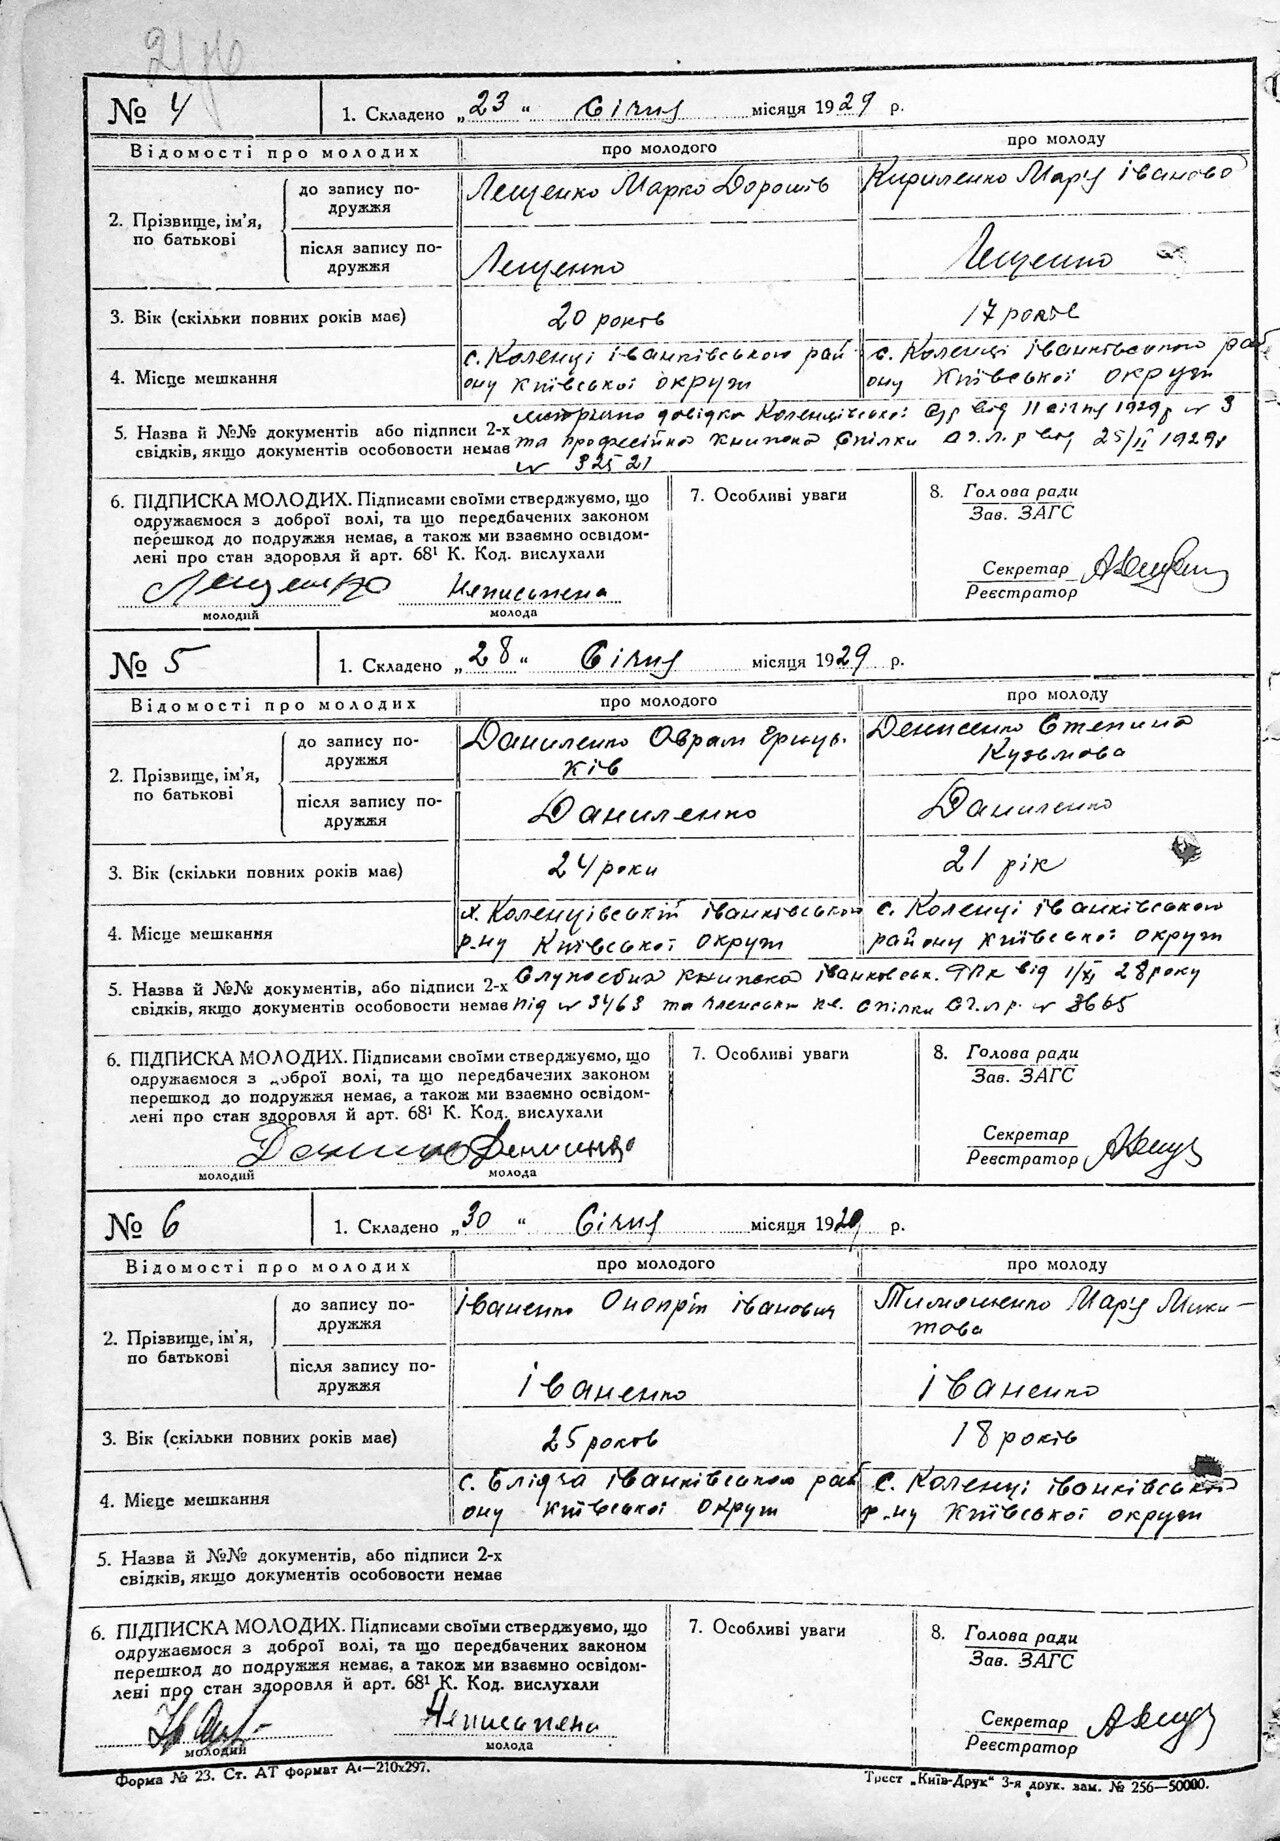 № 4
1. Складено „23“ Січня місяця 1929 р.
Відомості про молодих
про молодого
про молоду
2. Прізвище, ім’я, по батькові
до запису подружжя
Лещенко Марко Дорошів
Кириленко Мару Іваново
після запису подружжя
Лещенко
Лещенко
3. Вік (скільки повних років має)
20 років
17 років
4. Місце мешкання
с. Коленці Іванківського рай
ону Київської округи
с. Коленці Іванківського рай
ону Київської округи
5. Назва й №№ документів або підписи 2-х
свідків, якщо документів особовости немає
довідка Коленцівської від 11 січня 1929р № 3
та професійна книжка Спілки від 25/II 1929р
№ 32521
6. ПІДПИСКА МОЛОДИХ. Підписами своїми стверджуємо, що
одружаємося з доброї волі, та що передбачених законом
перешкод до подружжя немає, а також ми взаємно освідом-
лені про стан здоровля й арт. 68¹ К. Код. вислухали
Лещенко
Неписьмена
молодий
молода
7. Особливі уваги
8. Голова ради
Зав. ЗАГС
Секретар
Реєстратор
№ 5
1. Складено „28“ Січня місяця 1929 р.
Відомості про молодих
про молодого
про молоду
2. Прізвище, ім’я, по батькові
до запису подружжя
Даниленко Оврам Ериць-
ків
Денисенко Степина
Кузьмова
після запису подружжя
Даниленко
Даниленко
3. Вік (скільки повних років має)
24 роки
21 рік
4. Місце мешкання
х. Коленцівський Іванківського
р-ну Київської округи
с. Коленці Іванківського
району Київської округи
5. Назва й №№ документів, або підписи 2-х
свідків, якщо документів особовости немає
книжка Іванковськ. від 1/XI 28 року
під № 3463 та членська кн. Спілки № 3665
6. ПІДПИСКА МОЛОДИХ. Підписами своїми стверджуємо, що
одружаємося з доброї волі, та що передбачених законом
перешкод до подружжя немає, а також ми взаємно освідом-
лені про стан здоровля й арт. 68¹ К. Код. вислухали
молодий
молода
7. Особливі уваги
8. Голова ради
Зав. ЗАГС
Секретар
Реєстратор
№ 6
1. Складено „30“ Січня місяця 1929 р.
Відомості про молодих
про молодого
про молоду
2. Прізвище, ім’я, по батькові
до запису подружжя
Іваненко Онопрій Іванович
Тимошенко Мару Мики-
това
після запису подружжя
Іваненко
Іваненко
3. Вік (скільки повних років має)
25 років
18 років
4. Місце мешкання
с. Блідча Іванківського рай
ону Київської округи
с. Коленці Іванківського
р-ну Київської округи
5. Назва й №№ документів, або підписи 2-х
свідків, якщо документів особовости немає
6. ПІДПИСКА МОЛОДИХ. Підписами своїми стверджуємо, що
одружаємося з доброї волі, та що передбачених законом
перешкод до подружжя немає, а також ми взаємно освідом-
лені про стан здоровля й арт. 68¹ К. Код. вислухали
Неписьмена
молодий
молода
7. Особливі уваги
8. Голова ради
Зав. ЗАГС
Секретар
Реєстратор
Форма № 23. Ст. АТ формат А₄—210х297.
Трест „Київ-Друк“ 3-я друк. зам. № 256—50000.